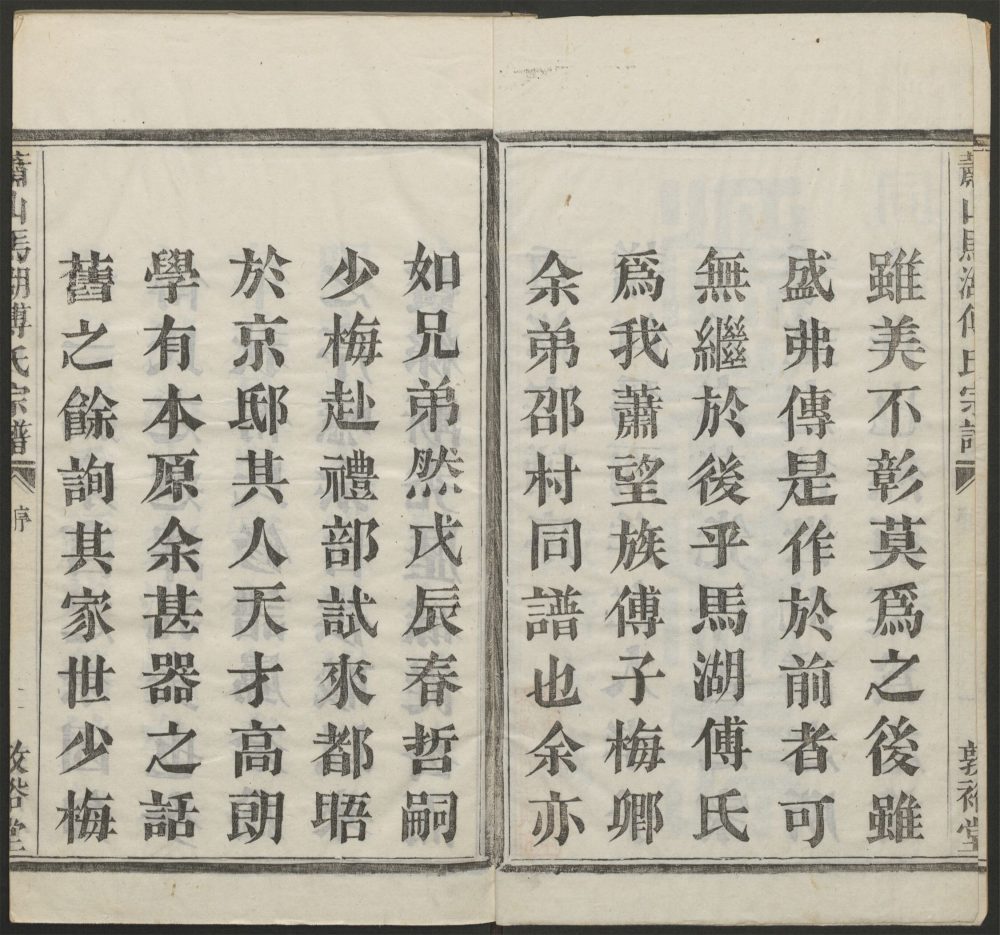 蕭山馬湖傅氏宗譜
敦裕堂
雖美不彰莫爲之後雖
盛弗傳是作於前者可
無繼於後乎馬湖傅氏
爲我蕭望族傅子梅卿
余弟邵村同譜也余亦
如兄弟然戊辰春哲嗣
少梅赴禮部試來都晤
於京邸其人天才高朗
學有本原余甚器之話
舊之餘詢其家世少梅
蕭山馬湖傅氏宗譜
序
敦裕堂